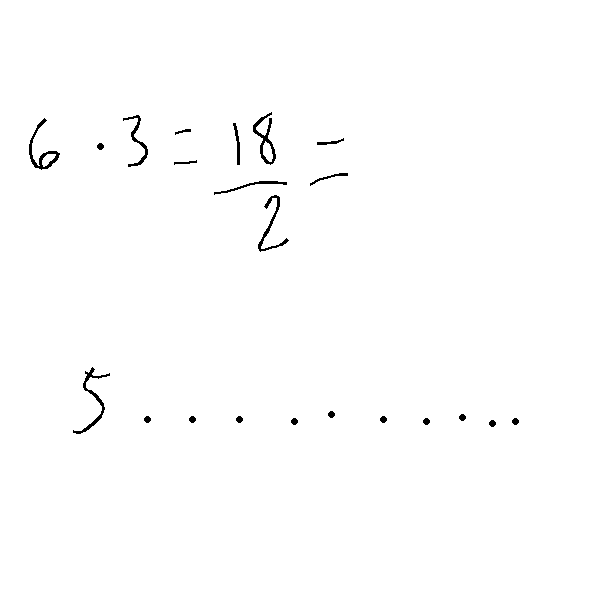 6 · 3 = 18/2 =
5 . . . . . . . . . .